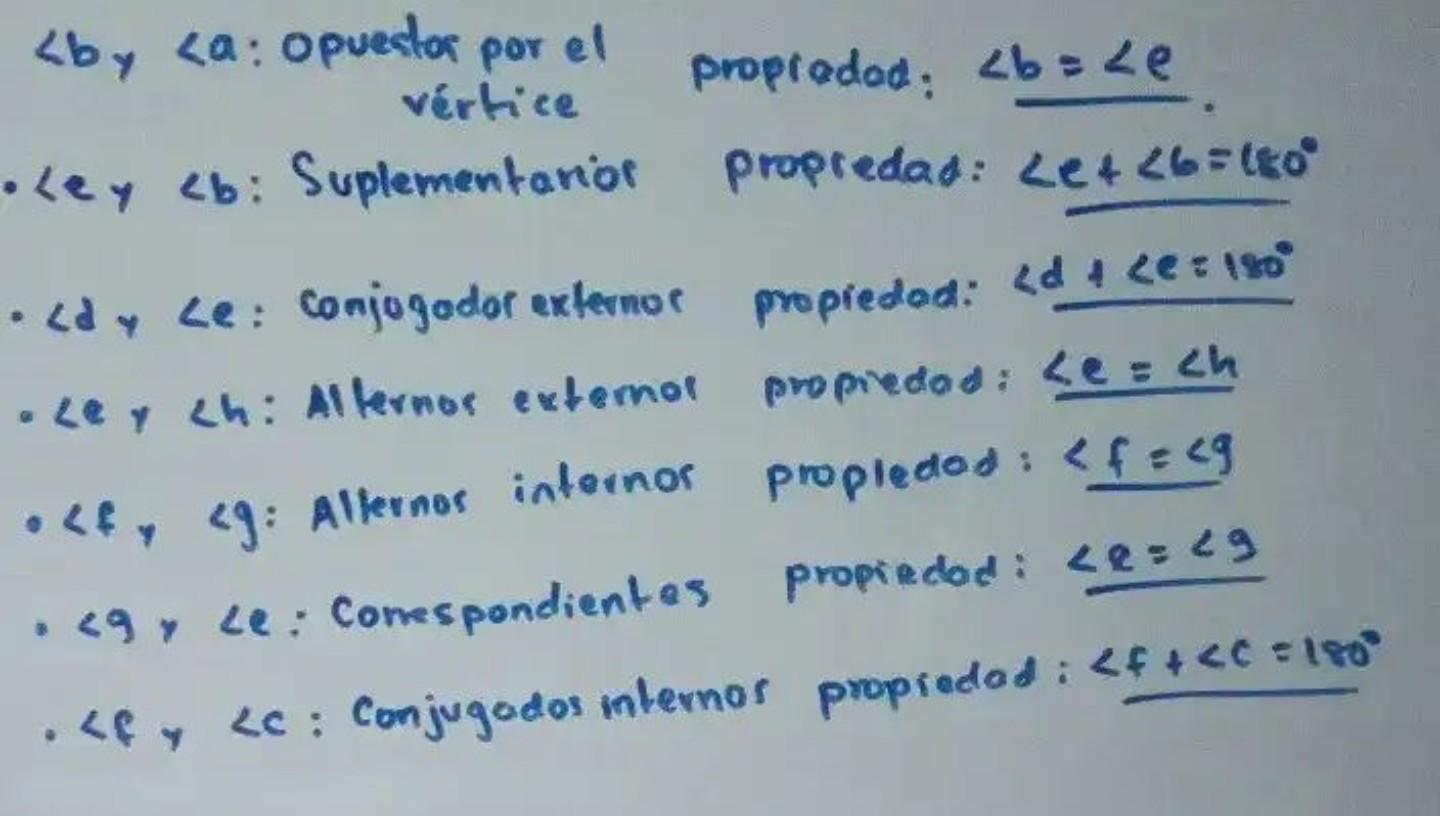 <b y <a: Opuestos por el vértice propiedad: <b = <e.
• <e y <b: Suplementarios propiedad: <e + <b = 180°
• <d y <e: Conjugados externos propiedad: <d + <e = 180°
• <e y <h: Alternos externos propiedad: <e = <h
• <f y <g: Alternos internos propiedad: <f = <g
• <g y <e: Correspondientes propiedad: <e = <g
• <f y <c: Conjugados internos propiedad: <f + <c = 180°